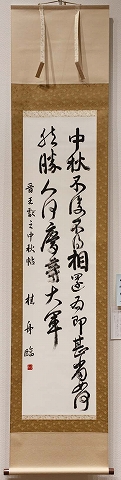 中秋不復不得相還為即甚省如何
然勝人何慶等大軍
晋王献之中秋帖　桂舟臨